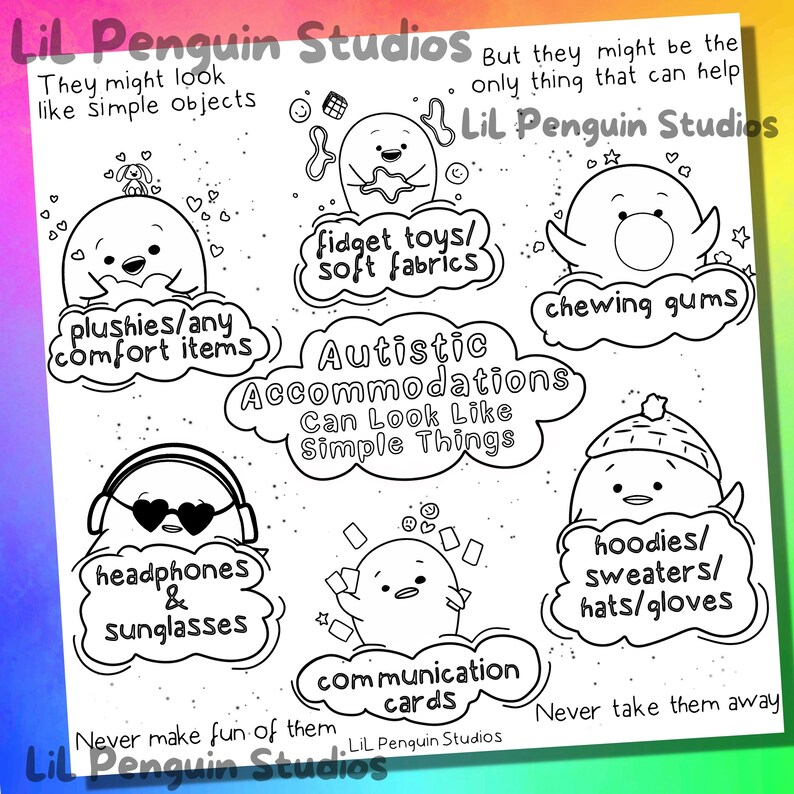 LiL Penguin Studios
They might look
like simple objects
But they might be the
only thing that can help
LiL Penguin Studios
fidget toys/
soft fabrics
plushies/any
comfort items
chewing gums
Autistic
Accommodations
Can Look Like
Simple Things
headphones
&
sunglasses
hoodies/
sweaters/
hats/gloves
communication
cards
Never make fun of them
LiL Penguin Studios
Never take them away
LiL Penguin Studios